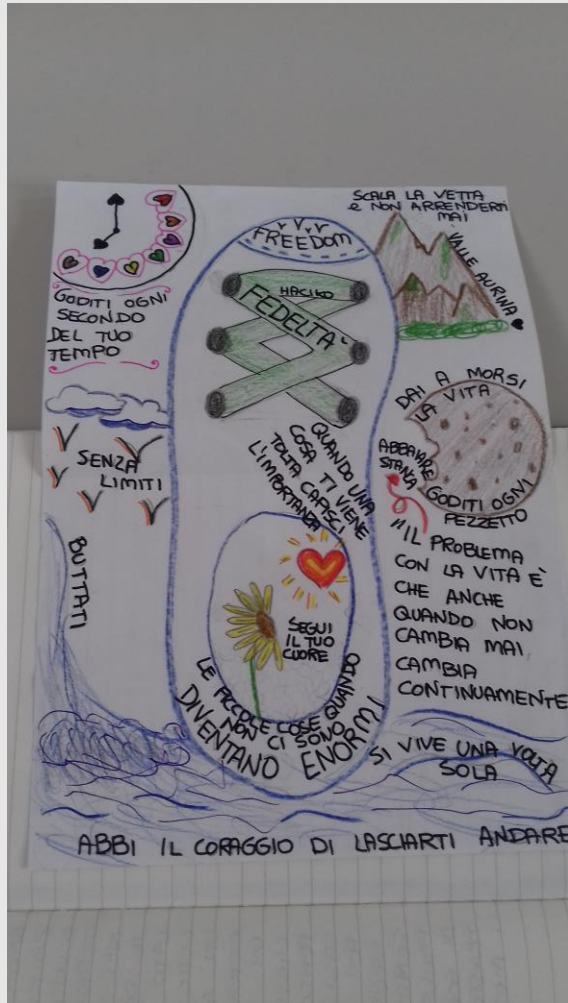 SCALA LA VETTA
e NON ARRENDERTI
MAI
VALLE AURINA
FREEDOM
HACIKO
FEDELTA'
GODITI OGNI
SECONDO
DEL TUO
TEMPO
DAI A MORSI
LA VITA
GODITI OGNI
PEZZETTO
SENZA
LIMITI
QUANDO UNA
COSA TI VIENE
TOLTA CAPISCI
L'IMPORTANZA
"IL PROBLEMA
CON LA VITA È
CHE ANCHE
QUANDO NON
CAMBIA MAI
CAMBIA
CONTINUAMENTE
BUTTATI
SEGUI
IL TUO
CUORE
LE PICCOLE COSE QUANDO
NON CI SONO
DIVENTANO ENORMI
SI VIVE UNA VOLTA
SOLA
ABBI IL CORAGGIO DI LASCIARTI ANDARE